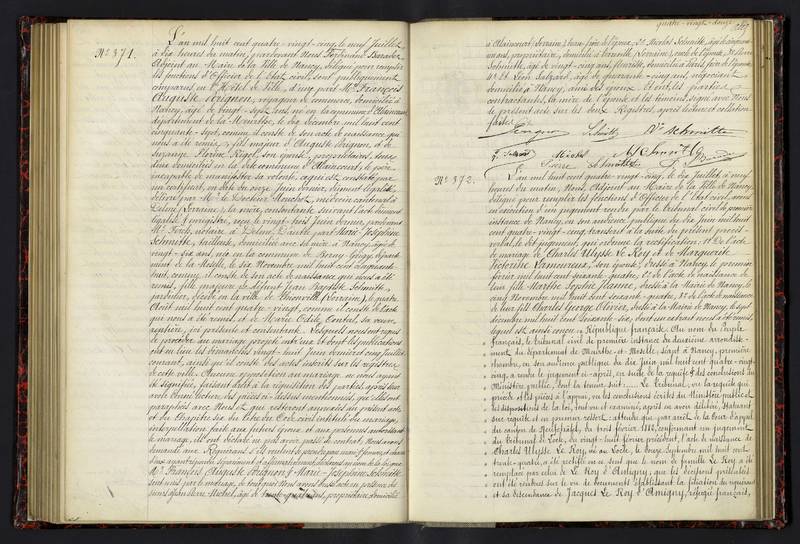 No. 371.
L'an mil huit cent quatre-vingt-cinq, le neuf Juillet
à dix heures du matin, pardevant Nous Ferdinand
Adjoint au Maire de la Ville de Nancy, délégué pour remplir
les fonctions d'Officier de l'Etat civil, sont publiquement
comparus en l'Hôtel de Ville, d'une part Mr. François
Auguste voyageur de commerce, domicilié à
Nancy, âgé de vingt-sept ans, né en la commune d'
département de la Meurthe, le dix décembre mil huit cent
cinquante-sept, comme il conste de son acte de naissance, qui
nous a été remis, fils majeur d'Auguste et de
Suzanne son épouse, propriétaires, tous
deux domiciliés en la dite commune d'Alaincourt, le père
incapable de manifester sa volonté, ce qui est constaté par
un certificat, en date du onze Juin dernier, dûment légalisé
délivré par Mr. le Docteur médecin cantonal à
Delme (Lorraine), la mère consentante suivant acte dûment
légalisé, enregistré, reçu le vingt-huit Juin dernier, par
Mr. notaire à Delme. D'autre part Marie-Joséphine
Schmitte, tailleuse, domiciliée avec sa mère à Nancy, âgée de
vingt-six ans, née en la commune de
département de la Moselle, le dix Novembre mil huit cent cinquante-
huit, comme il conste de son acte de naissance qui nous a été
remis, fille majeure de défunt Jean Baptiste Schmitte,
décédé en la ville de Thionville (Lorraine), le quatre
Août mil huit cent quatre-vingt, comme il conste de l'acte
qui nous a été remis, et de Marie Odile sa veuve
rentière, ici présente et consentante. Lesquels nous ont requis
de procéder au mariage projeté entre eux et dont les publications
ont eu lieu les dimanches vingt-huit Juin dernier et cinq Juillet
courant, ainsi qu'il conste des actes inscrits sur les registres
de cette ville. Aucune opposition au mariage ne nous ayant
été signifiée, faisant droit à la réquisition des parties, après leur
avoir donné lecture des pièces ci-dessus mentionnées, qu'elles ont
paraphées avec Nous et qui resteront annexées au présent acte
et du Chapitre six du titre du Code civil intitulé du mariage,
interpellation faite aux futurs époux et aux personnes autorisant
le mariage, ils ont déclaré ne pas avoir passé de contrat, Nous avons
demandé aux Requérants s'ils veulent se prendre pour mari et femme, et chacun
d'eux ayant répondu séparément et affirmativement, déclarons au nom de la loi, que
Mr. François Auguste et Marie-Joséphine Schmitte
sont unis par le mariage, de tout quoi Nous avons dressé acte en présence des
sieurs Jean Pierre Michel, âgé de propriétaire, domicilié
quatre-vingt-douze
à Alaincourt (Lorraine), beau-frère de l'époux, Nicolas Schmitte, âgé de
ans, propriétaire, domicilié à (Lorraine), oncle de l'épouse, Pierre
Schmitte, âgé de vingt-cinq ans, domicilié à Paris, frère de l'épouse
et Léon âgé de quarante-cinq ans, négociant
domicilié à Nancy, ami des époux. Et ont, les parties
contractantes, la mère de l'épouse et les témoins, signé avec Nous
le présent acte sur les deux Registres, après lecture et collation
faites
Schmitt Ve Schmitte
Michel N. Schmitt
Pierre Schmitte
No. 372.
L'an mil huit cent quatre-vingt-cinq, le dix Juillet à neuf
heures du matin, Nous, Adjoint au Maire de la Ville de Nancy,
délégué pour remplir les fonctions d'Officier de l'Etat civil, avons
en exécution d'un jugement rendu par le tribunal civil de première
instance de Nancy, en son audience publique du dix Juin mil huit
cent quatre-vingt-cinq, transcrit à la suite du présent procès-
verbal, le dit jugement, qui ordonne la rectification, 1º De l'acte
de mariage de Charles Ulysse Le Roy et de Marguerite
Victorine Lamoureux, son épouse, dressé à Nancy, le premier
février mil huit cent soixante, 2º de l'acte de naissance de
leur fille Marthe Sophie Jeanne, dressé à la Mairie de Nancy, le
cinq Novembre mil huit cent soixante-quatre, 3º de l'acte de naissance
de leur fils Charles George Olivier, dressé à la Mairie de Nancy, le sept
décembre mil huit cent soixante-six, dont un extrait nous a été remis,
lequel est ainsi conçu « République française. Au nom du Peuple
« français, le tribunal civil de première instance du deuxième arrondisse-
« ment du département de Meurthe-et-Moselle, siégeant à Nancy, première
« chambre, en son audience publique du dix Juin mil huit cent quatre-vingt-
« cinq, a rendu le jugement ci-après, en suite de la requête & des conclusions du
« Ministère public, dont la teneur suit: Le Tribunal, vu la requête qui
« précède et les pièces à l'appui, vu les conclusions écrites du Ministère public et
« les dispositions de la loi, tout vu et examiné, après en avoir délibéré, statuant
« sur requête et en premier ressort, attendu que par arrêt de la Cour d'appel
« du canton de Neufchâtel, du trois février 1882, confirmant un jugement
« du Tribunal du Locle, du vingt-huit février précédent, l'acte de naissance de
« Charles Ulysse Le Roy, né au Locle, le douze Septembre mil huit cent
« trente-quatre, a été rectifié en ce sens que le nom de famille Le Roy a été
« remplacé par celui de Le Roy d'Amigny, que les décisions précitées
« ont été rendues sur le vu de documents établissant la filiation du requérant
« et sa descendance de Jacques Le Roy d'Amigny, réfugié français,